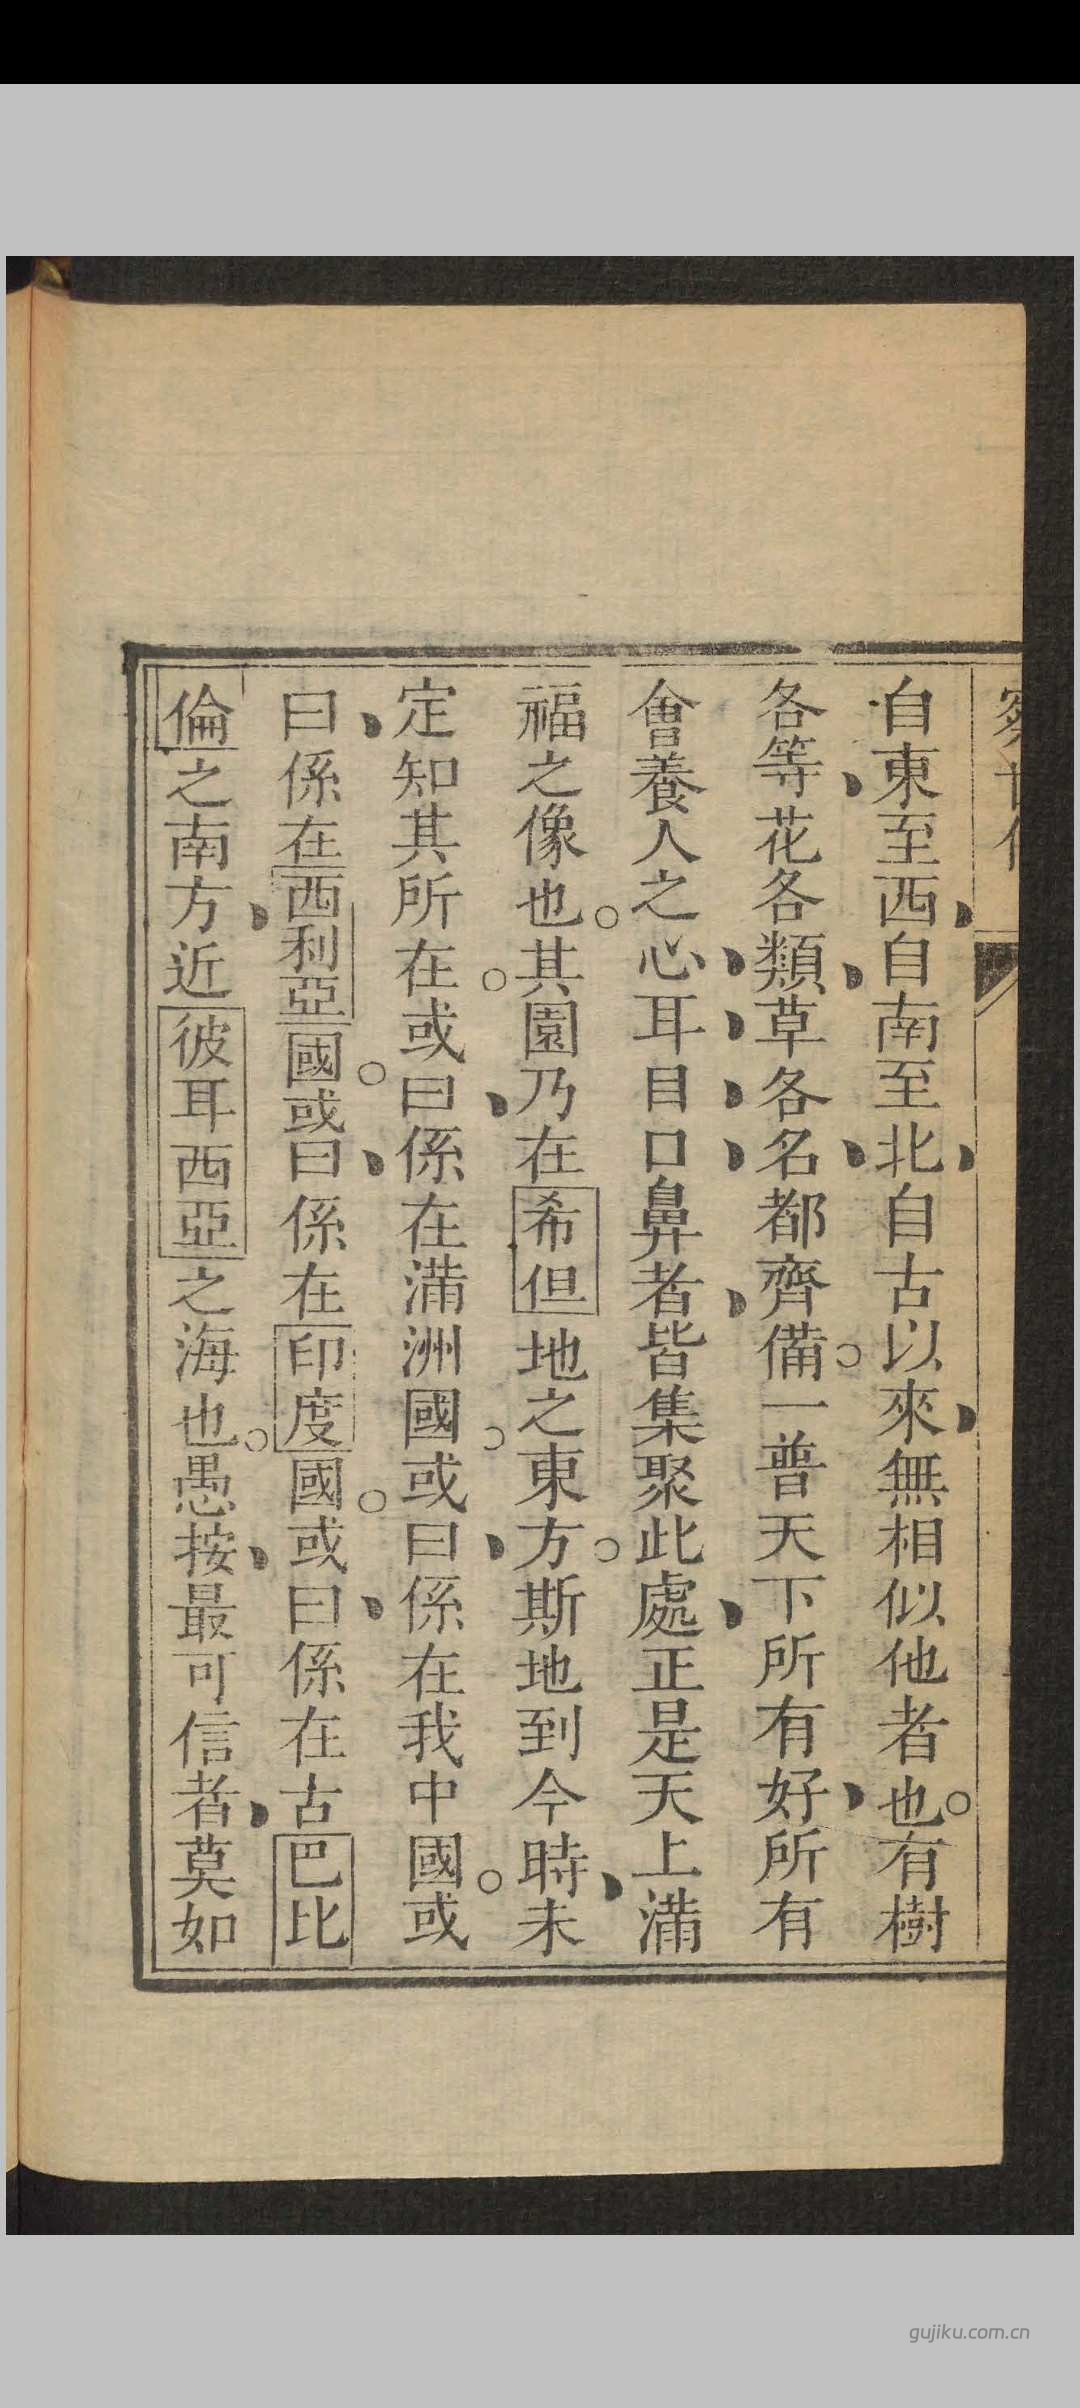 自東至西、自南至北、自古以來、無相似他者也。有樹
各等、花各類、草各名、都齊備。一普天下所有好、所有
會養人之心、耳、目、口、鼻者、皆集聚此處、正是天上滿
福之像也。其園乃在希但地之東方。斯地到今時、未
定知其所在。或曰、係在滿洲國。或曰、係在我中國。或
曰、係在西利亞國。或曰、係在印度國。或曰、係在古巴比
倫之南方、近彼耳西亞之海也。愚按、最可信者、莫如
gujiku.com.cn